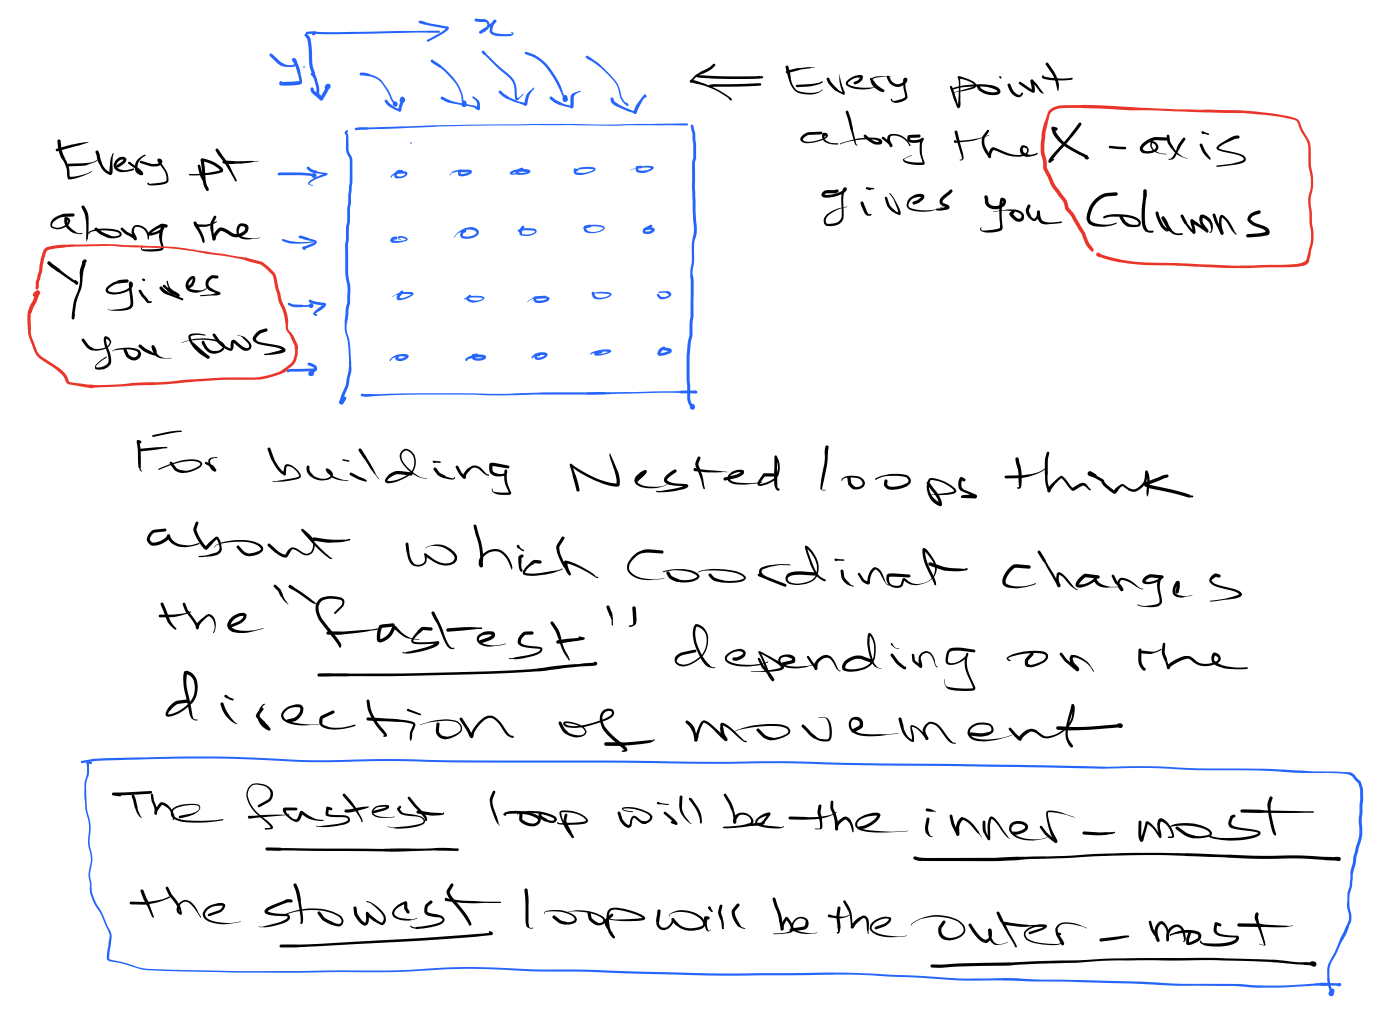 x
y
Every point
along the X-axis
gives you Columns
Every pt
along the
Y gives
you rows
For building Nested loops think
about which Coordinat changes
the "fastest" depending on the
direction of movement
The fastest loop will be the inner-most
the slowest loop will be the outer-most